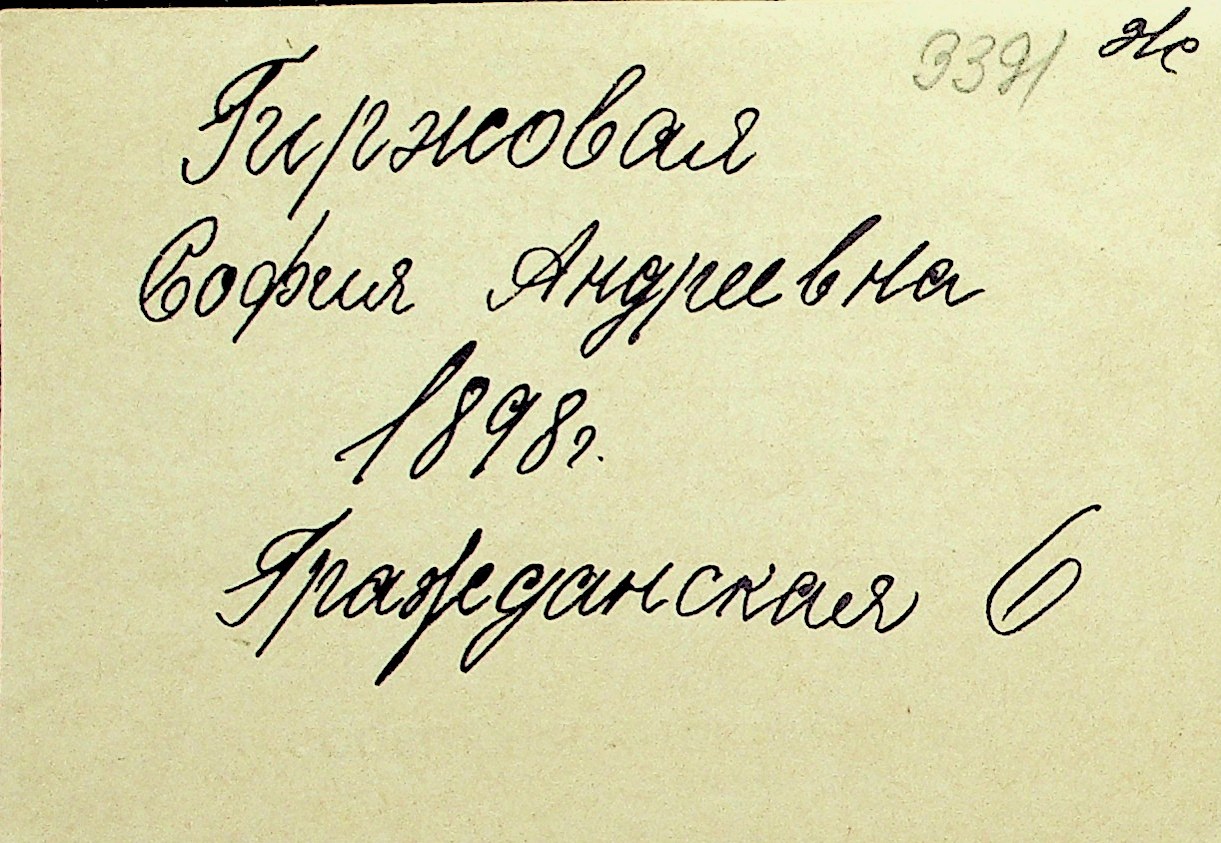 3391 Ж
Гиржовая
София Андреевна
1898г.
Гражданская 6